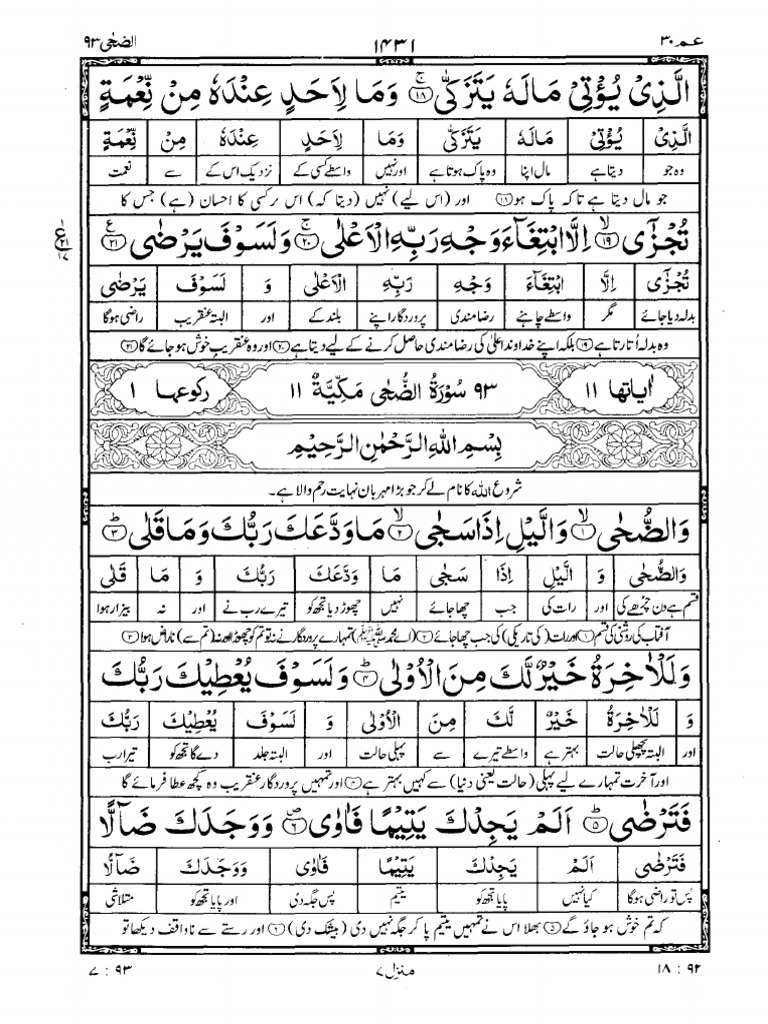 عـم ۳۰ ۱۴۳۱ الضحٰی ۹۳
الَّذِیْ یُؤْتِیْ مَالَهٗ یَتَزَكّٰیۚ ﴿۱۸﴾ وَمَا لِاَحَدٍ عِنْدَهٗ مِنْ نِّعْمَةٍ
الَّذِیْ یُؤْتِیْ مَالَهٗ یَتَزَكّٰی وَمَا لِاَحَدٍ عِنْدَهٗ مِنْ نِّعْمَةٍ
وہ جو دیتا ہے مال اپنا وہ پاک ہوتا ہے اور نہیں واسطے کسی کے نزدیک اس کے سے نعمت
جو مال دیتا ہے تاکہ پاک ہو ﴿۱۸﴾ اور (اس لیے) نہیں (دیتا کہ) اس پر کسی کا احسان (ہے) جس کا
تُجْزٰۤیۙ ﴿۱۹﴾ اِلَّا ابْتِغَآءَ وَجْهِ رَبِّهِ الْاَعْلٰیۚ ﴿۲۰﴾ وَلَسَوْفَ یَرْضٰی ﴿۲۱﴾ ع
تُجْزٰی اِلَّا ابْتِغَآءَ وَجْهِ رَبِّهِ الْاَعْلٰی وَ لَسَوْفَ یَرْضٰی
بدلہ دیا جائے مگر واسطے چاہنے رضامندی پروردگار اپنے بلند کے اور البتہ عنقریب راضی ہوگا
وہ بدلہ اُتارتا ہے ﴿۱۹﴾ بلکہ اپنے خداوند اعلیٰ کی رضامندی حاصل کرنے کے لیے دیتا ہے ﴿۲۰﴾ اور وہ عنقریب خوش ہو جائے گا ﴿۲۱﴾
اٰیاتها ۱۱ ۹۳ سُوْرَةُ الضُّحٰی مَكِّیَّةٌ ۱۱ رکوعها ۱
بِسْمِ اللّٰهِ الرَّحْمٰنِ الرَّحِیْمِ
شروع اللہ کا نام لے کر جو بڑا مہربان نہایت رحم والا ہے۔
وَالضُّحٰیۙ ﴿۱﴾ وَالَّیْلِ اِذَا سَجٰیۙ ﴿۲﴾ مَا وَدَّعَكَ رَبُّكَ وَمَا قَلٰیؕ ﴿۳﴾
وَالضُّحٰی وَ الَّیْلِ اِذَا سَجٰی مَا وَدَّعَكَ رَبُّكَ وَ مَا قَلٰی
قسم ہے دن چڑھے کی اور رات کی جب چھا جائے نہیں چھوڑ دیا تجھ کو تیرے رب نے اور نہ بیزار ہوا
آفتاب کی روشنی کی قسم ﴿۱﴾ اور رات (کی تاریکی) کی جب چھا جائے ﴿۲﴾ (اے محمد ﷺ) تمہارے پروردگار نے نہ تو تم کو چھوڑا اور نہ (تم سے) ناراض ہوا ﴿۳﴾
وَلَلْاٰخِرَةُ خَیْرٌ لَّكَ مِنَ الْاُوْلٰیؕ ﴿۴﴾ وَلَسَوْفَ یُعْطِیْكَ رَبُّكَ
وَ لَلْاٰخِرَةُ خَیْرٌ لَّكَ مِنَ الْاُوْلٰی وَ لَسَوْفَ یُعْطِیْكَ رَبُّكَ
اور البتہ پچھلی حالت بہتر ہے واسطے تیرے سے پہلی حالت اور البتہ جلد دے گا تجھ کو تیرا رب
اور آخرت تمہارے لیے پہلی (حالت یعنی دنیا) سے کہیں بہتر ہے ﴿۴﴾ اور تمہیں پروردگار عنقریب وہ کچھ عطا فرمائے گا
فَتَرْضٰیؕ ﴿۵﴾ اَلَمْ یَجِدْكَ یَتِیْمًا فَاٰوٰی۪ ﴿۶﴾ وَوَجَدَكَ ضَآلًّا
فَتَرْضٰی اَلَمْ یَجِدْكَ یَتِیْمًا فَاٰوٰی وَوَجَدَكَ ضَآلًّا
پس تو راضی ہوگا کیا نہیں پایا تجھ کو یتیم پس جگہ دی اور پایا تجھ کو متلاشی
کہ تم خوش ہو جاؤ گے ﴿۵﴾ بھلا اس نے تمہیں یتیم پا کر جگہ نہیں دی (بیشک دی) ﴿۶﴾ اور رستے سے ناواقف دیکھا تو
۹۲ : ۱۸ منزل ۷ ۹۳ : ۷